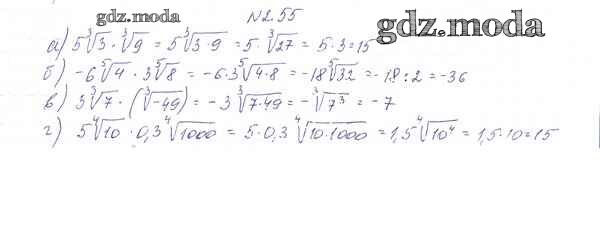 gdz.moda
№2.55
gdz.moda
а) 5∛3 · ∛9 = 5∛(3·9) = 5·∛27 = 5·3=15
б) -6⁵√4 · 3⁵√8 = -6·3⁵√(4·8) = -18⁵√32 = -18:2 = -36
в) 3∛7 · (∛(-49)) = -3∛(7·49) = -∛(7³) = -7
г) 5⁴√10 · 0,3⁴√1000 = 5·0,3⁴√(10·1000) = 1,5⁴√(10⁴) = 1,5·10=15